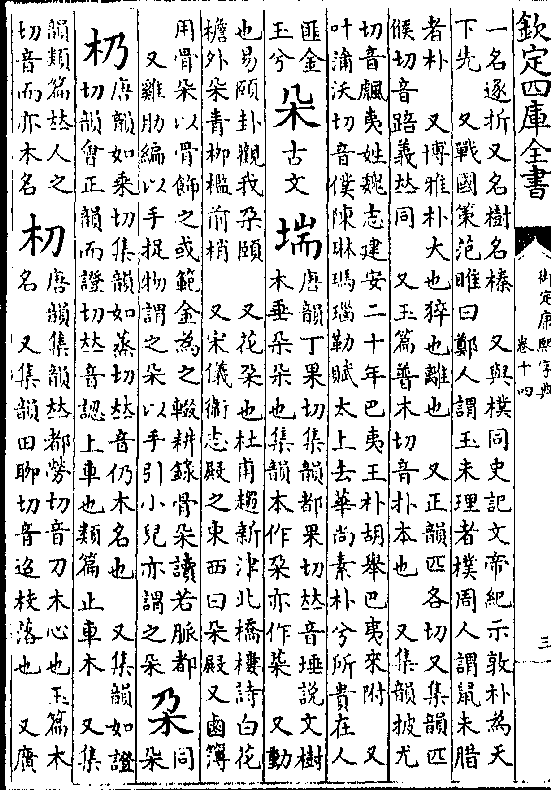 欽定四庫全書
御定康熙字典
卷十四
三
一名逐折又名樹名榛 又與樸同史記文帝紀示敦朴為天
下先 又戰國策范睢曰鄭人謂玉未理者樸周人謂鼠未腊
者朴 又博雅朴大也猝也離也 又正韻匹各切又集韻匹
候切音踣義𠀤同 又玉篇普木切音朴本也 又集韻披尤
切音飆夷姓魏志建安二十年巴夷王朴胡舉巴夷來附 又
叶蒲沃切音僕陳琳瑪瑙勒賦太上去華尚素朴兮所貴在人
匪金
玉兮
朵
古文
㙐
唐韻丁果切集韻都果切𠀤音埵說文樹
木垂朵朵也集韻本作朶亦作 又動
也易頤卦觀我朶頤 又花朵也杜甫題新津北橋樓詩白花
檐外朵青柳檻前梢 又宋儀衞志殿之東西曰朵殿 又鹵簿
用骨朵以骨飾之或範金為之輟耕錄骨朵讀若脈都
又雞肋編以手捉物謂之朵以手引小兒亦謂之朵
朶
同
朵
唐韻如乘切集韻如蒸切𠀤音仍木名也 又集韻如證
切韻會正韻而證切𠀤音認上車也類篇止車木 又集
韻類篇𠀤人之
切音而亦木名
朷
唐韻集韻𠀤都勞切音刀木心也玉篇木
名 又集韻田聊切音迢枝落也 又廣